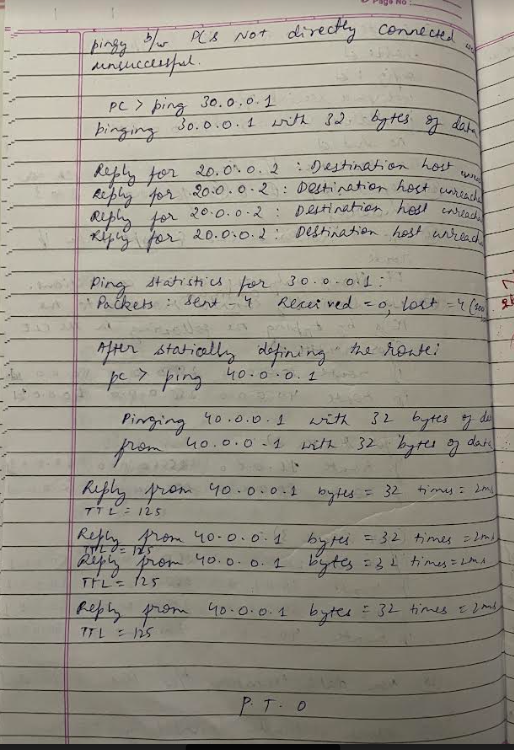 Page No
pingy b/w PCs Not directly connected
unsuccessful.
PC > ping 30.0.0.1
pinging 30.0.0.1 with 32 bytes of data
Reply for 20.0.0.2 : Destination host unrea
Reply for 20.0.0.2 : Destination host unreacha
Reply for 20.0.0.2 : Destination host unreacha
Reply for 20.0.0.2 : Destination host unreach
Ping statistics for 30.0.0.1:
Packets : Sent = 4 Received = 0, lost = 4 (100
After statically defining the route:
pc > ping 40.0.0.1
Pinging 40.0.0.1 with 32 bytes of da
from 40.0.0.1 with 32 bytes of data
Reply from 40.0.0.1 bytes = 32 times = 2ms
TTL = 125
Reply from 40.0.0.1 bytes = 32 times = 2ms
TTL = 125
Reply from 40.0.0.1 bytes = 32 times = 2ms
TTL = 125
Reply from 40.0.0.1 bytes = 32 times = 2ms
TTL = 125
P.T.O